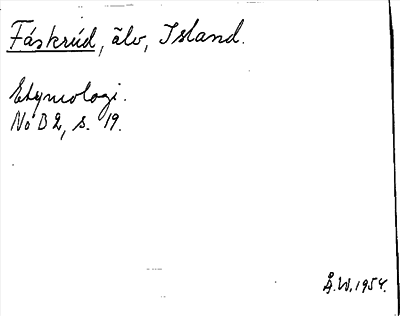 Fáskrúd, älv, Island.
Etymologi.
No B 2, s. 19.
Å.W. 1954.